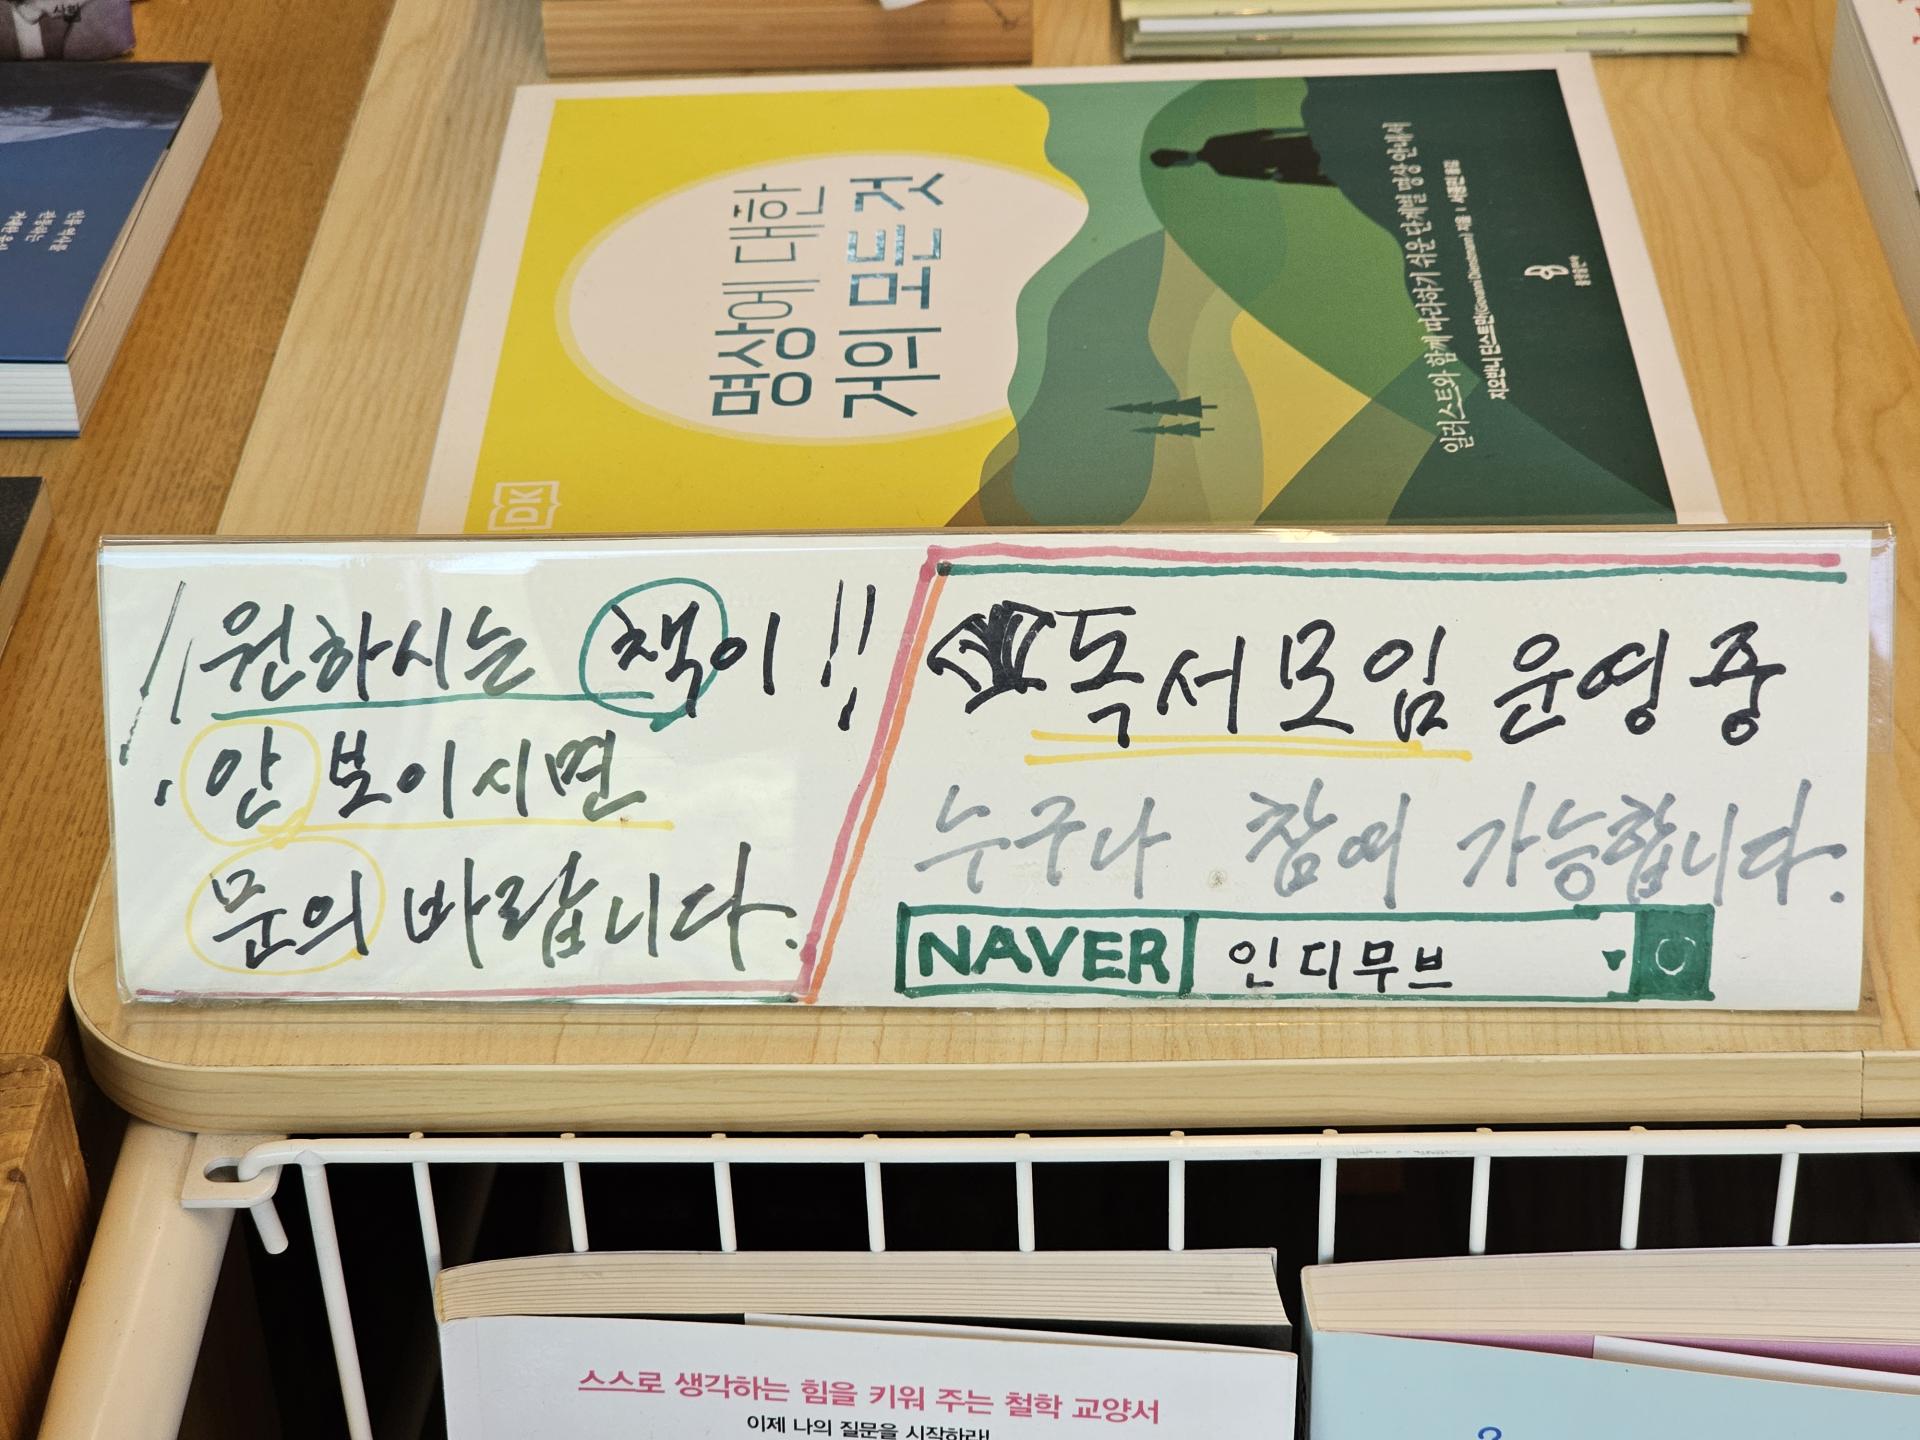 사림
명상에 대한
거의 모든 것
일러스트와 함께 따라하기 쉬운 단계별 명상 안내서
지오반니 딘스트만(Giovanni Dienstmann) 지음 I 서종민 옮김
DK
원하시는 책이!!
안 보이시면
문의 바랍니다.
독서모임 운영 중
누구나 참여 가능합니다.
NAVER 인디무브
스스로 생각하는 힘을 키워 주는 철학 교양서
이제 나의 질문을 시작하라!